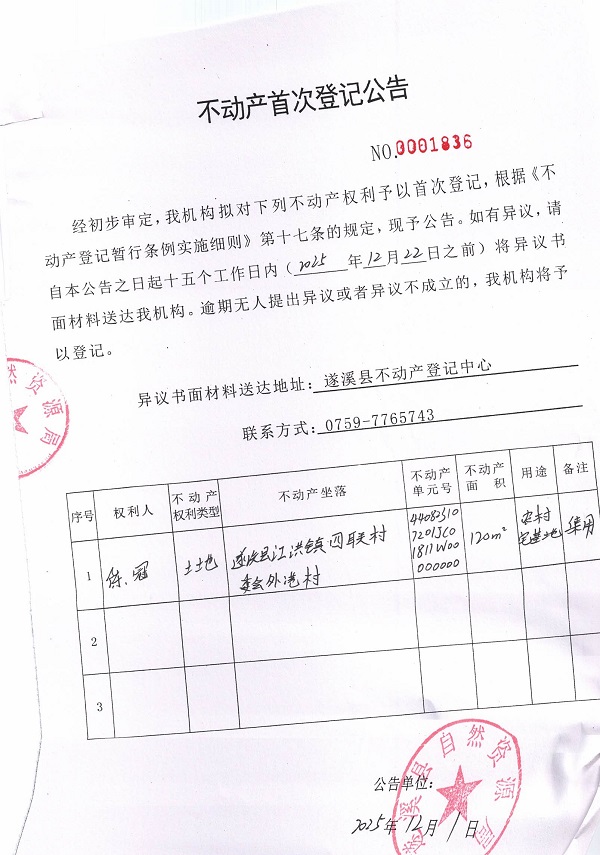 不动产首次登记公告
NO.0001836
经初步审定，我机构拟对下列不动产权利予以首次登记，根据《不
动产登记暂行条例实施细则》第十七条的规定，现予公告。如有异议，请
自本公告之日起十五个工作日内（2025年12月22日之前）将异议书
面材料送达我机构。逾期无人提出异议或者异议不成立的，我机构将予
以登记。
异议书面材料送达地址：遂溪县不动产登记中心
联系方式：0759-7765743
序号 权利人 不动产权利类型 不动产坐落 不动产单元号 不动产面积 用途 备注
1 冠 土地 遂溪县江洪镇四联村 120m² 农村
委会外港村 宅基地
2
3
公告单位：
2025年12月1日
遂溪县自然资源局
然资源局